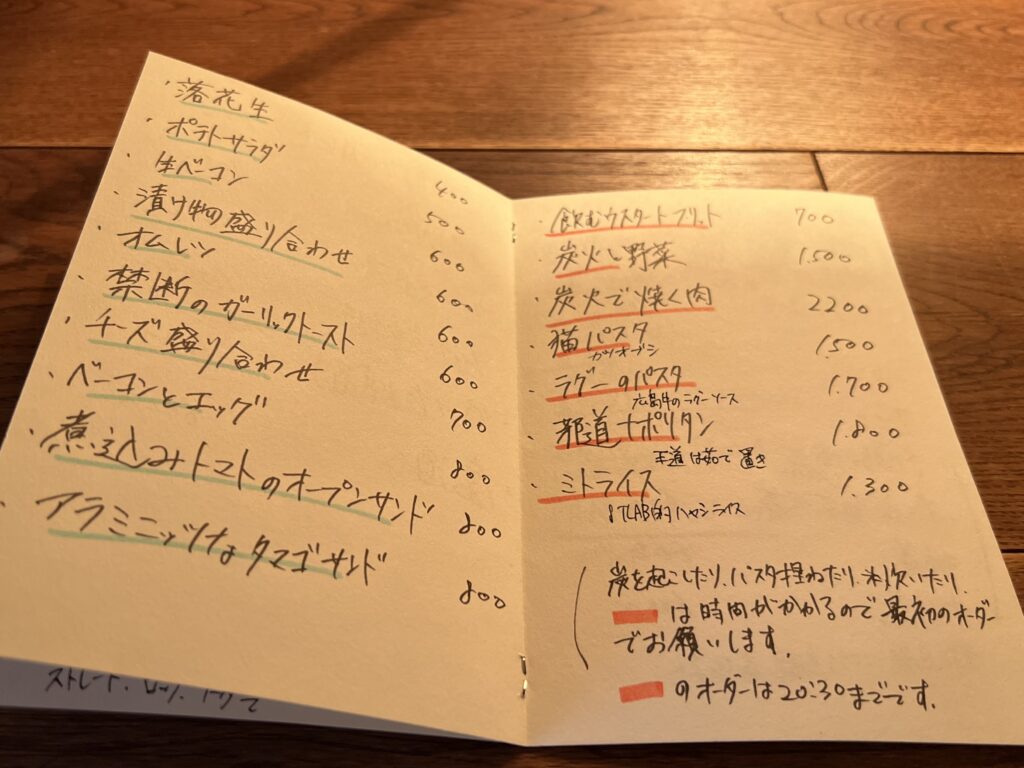 ・落花生 400
・ポテトサラダ 500
・生ベーコン 600
・漬け物の盛り合わせ 600
・オムレツ 600
・禁断のガーリックトースト 600
・チーズ盛り合わせ 700
・ベーコンとエッグ 800
・煮込みトマトのオープンサンド 800
・アラミニッツなタマゴサンド 800
ストレート、ロック
・飲むウスタートフリット 700
・炭火し野菜 1.500
・炭火で焼く肉 2200
・猫パスタ 1.500
カツオブシ
・ラグーのパスタ 1.700
広島牛のラグーソース
・邪道ナポリタン 1.800
王道は茹で置き
・ミトライス 1.300
8TLAB的ハヤシライス
炭を起こしたり、パスタ捏ねたり、米炊いたり、
は時間がかかるので最初のオーダー
でお願いします。
のオーダーは20:30までです。